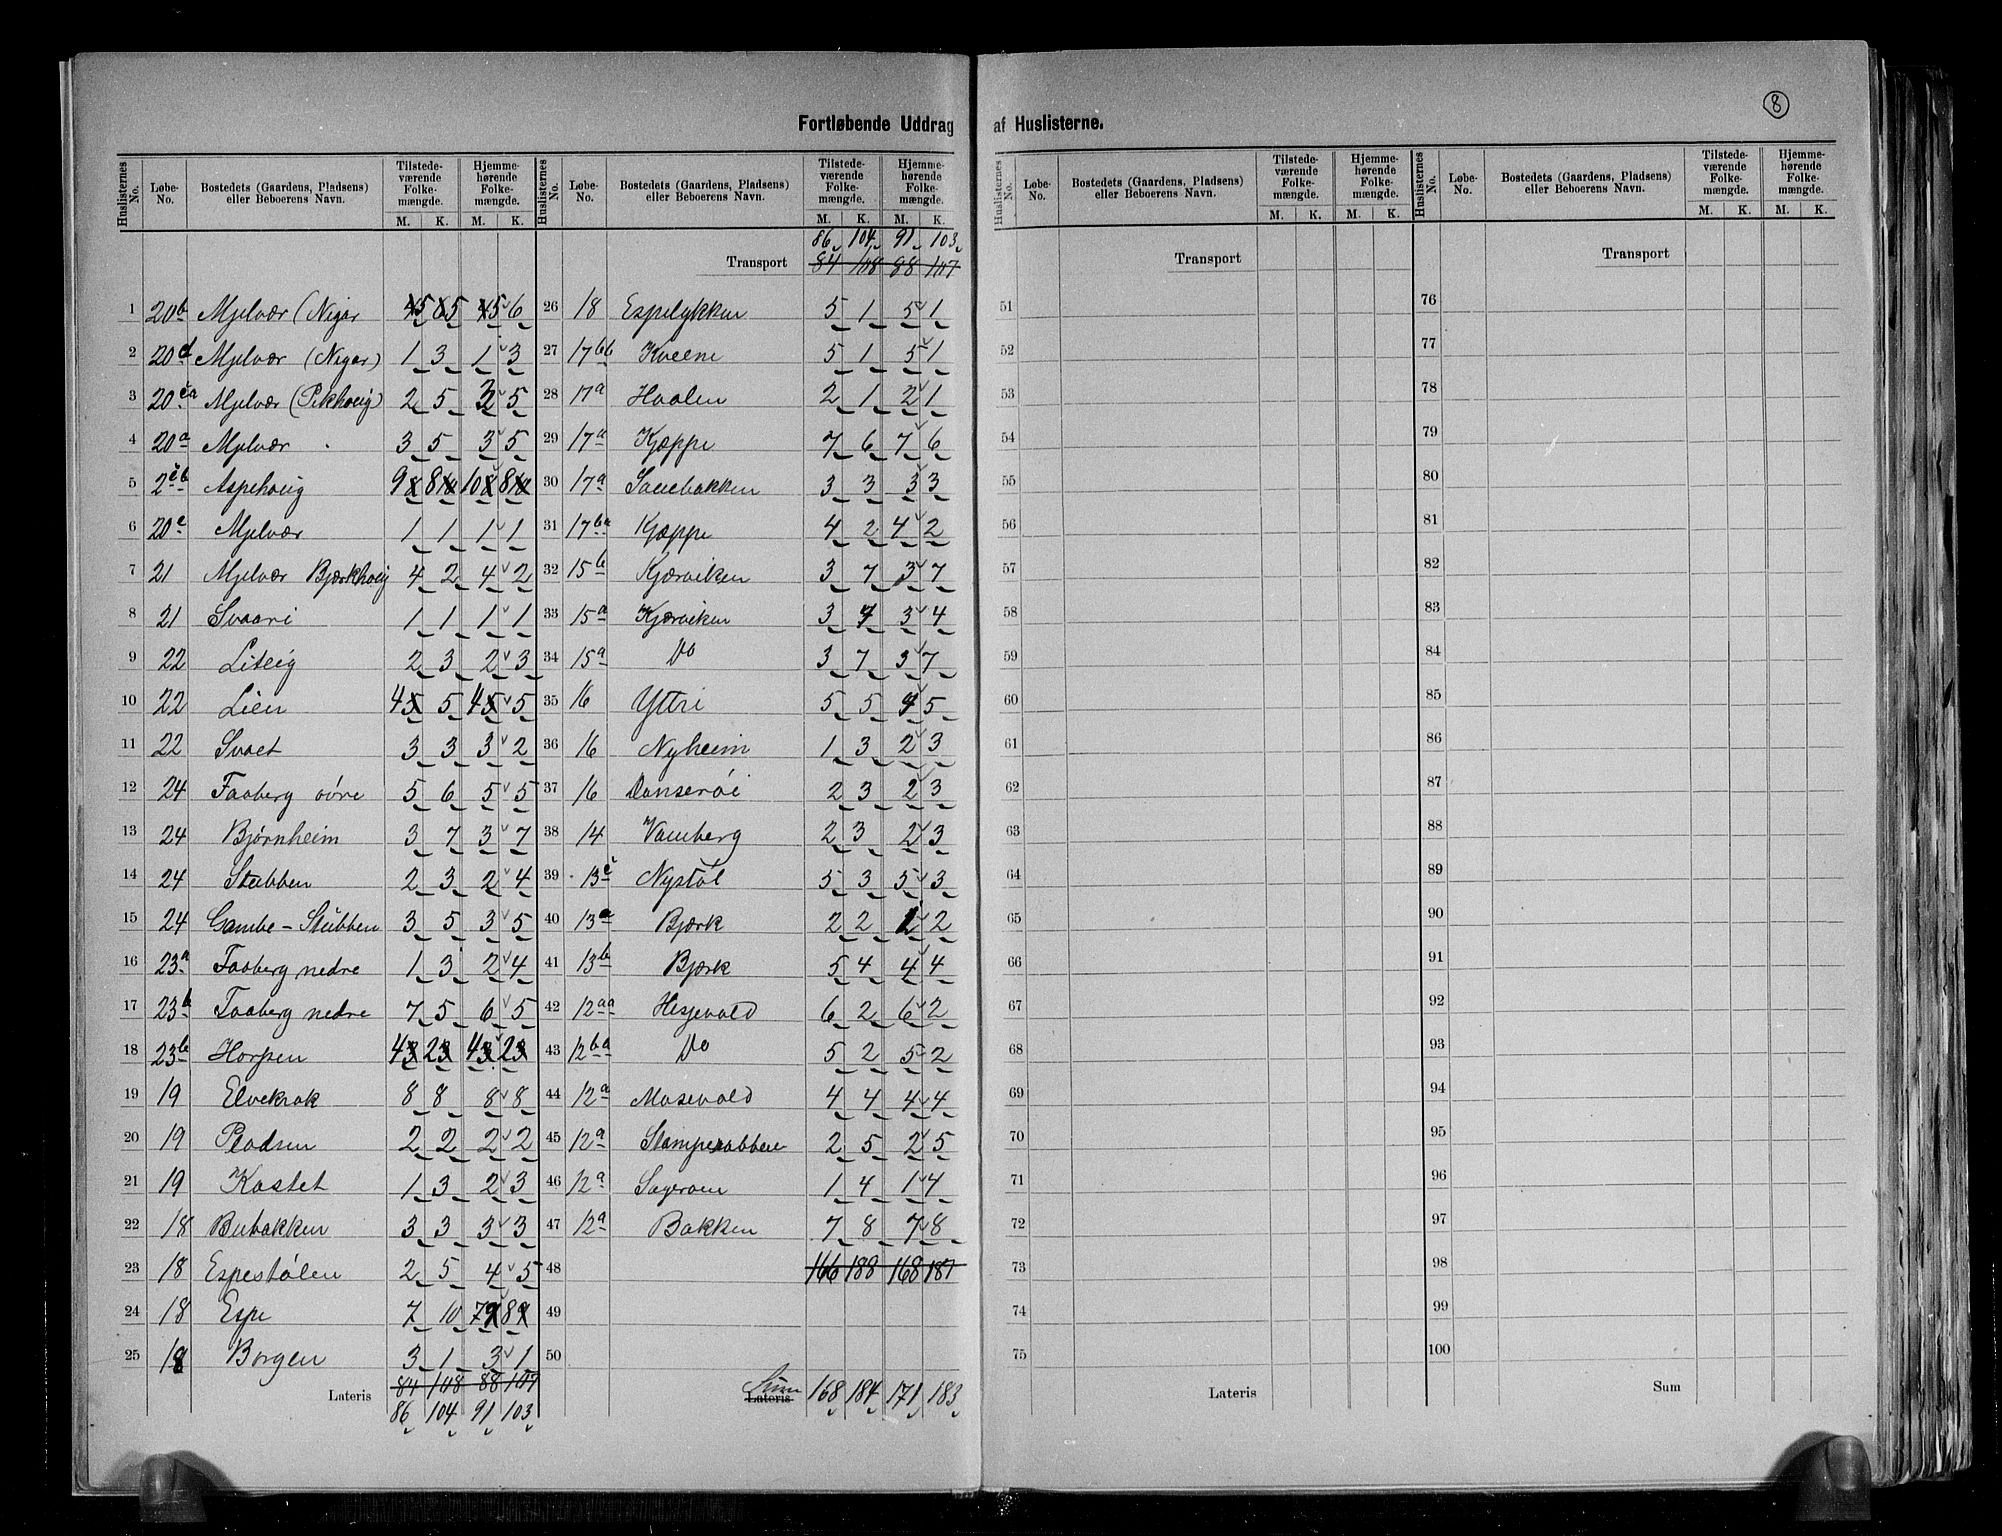 8
Fortløbende Uddrag af Huslisterne.
Huslisternes No. Løbe-No. Bostedets (Gaardens, Pladsens) eller Beboerens Navn. Tilstedeværende Folkemængde. M. K. Hjemmehørende Folkemængde. M. K.
1 20b Mjelvær (Nigar 4 5 6 5 4 5 6
2 20d Mjelvær (Nigar) 1 3 1 3
3 20ca Mjelvær (Pikhoug) 2 5 3 5
4 20a Mjelvær 3 5 3 5
5 2cb Aspehoug 9 8 8 10 10 8 8 10
6 20e Mjelvær 1 1 1 1
7 21 Mjelvær Bjørkhoug 4 2 4 2
8 21 Svaari 1 1 1 1
9 22 Liteig 2 3 2 3
10 22 Lien 4 5 5 4 5 5
11 22 Svaet 3 3 3 2
12 24 Faaberg øvre 5 6 5 5
13 24 Bjørnheim 3 7 3 7
14 24 Stubben 2 3 2 4
15 24 Gambe-Stubben 3 5 3 5
16 23a Faaberg nedre 1 3 2 4
17 23b Faaberg nedre 7 5 6 5
18 23b Horpen 4 3 2 3 4 3 2 3
19 19 Elvekrok 8 8 8 8
20 19 Pladsen 2 2 2 2
21 19 Kastet 1 3 2 3
22 18 Bubakken 3 3 3 3
23 18 Espestølen 2 5 4 5
24 18 Espe 7 10 7 9 8 9
25 18 Borgen 3 1 3 1
84 108 88 107
Lateris
86 104 91 103
Huslisternes No. Løbe-No. Bostedets (Gaardens, Pladsens) eller Beboerens Navn. Tilstedeværende Folkemængde. M. K. Hjemmehørende Folkemængde. M. K.
86 104 91 103
Transport 84 108 88 107
26 18 Espelykken 5 1 5 1
27 17bb Kveene 5 1 5 1
28 17a Haalen 2 1 2 1
29 17a Kjæppe 7 6 7 6
30 17a Sauebakken 3 3 3 3
31 17ba Kjæppe 4 2 4 2
32 15b Kjærviken 3 7 3 7
33 15a Kjærviken 3 4 3 4
34 15a Do 3 7 3 7
35 16 Yttri 5 5 4 5
36 16 Nyheim 1 3 2 3
37 16 Danserøi 2 3 2 3
38 14 Vamberg 2 3 2 3
39 13c Nystøl 5 3 5 3
40 13a Bjørk 2 2 1 2
41 13b Bjørk 5 4 4 4
42 12aa Hesjevold 6 2 6 2
43 12ba Do 5 2 5 2
44 12a Mosevold 4 4 4 4
45 12a Stamperabben 2 5 2 5
46 12a Sageroen 1 4 1 4
47 12a Bakken 7 8 7 8
48 166 188 168 187
49
50
Sum Lateris 168 184 171 183
Huslisternes No. Løbe-No. Bostedets (Gaardens, Pladsens) eller Beboerens Navn. Tilstedeværende Folkemængde. M. K. Hjemmehørende Folkemængde. M. K.
Transport
51
52
53
54
55
56
57
58
59
60
61
62
63
64
65
66
67
68
69
70
71
72
73
74
75
Lateris
Huslisternes No. Løbe-No. Bostedets (Gaardens, Pladsens) eller Beboerens Navn. Tilstedeværende Folkemængde. M. K. Hjemmehørende Folkemængde. M. K.
Transport
76
77
78
79
80
81
82
83
84
85
86
87
88
89
90
91
92
93
94
95
96
97
98
99
100
Sum